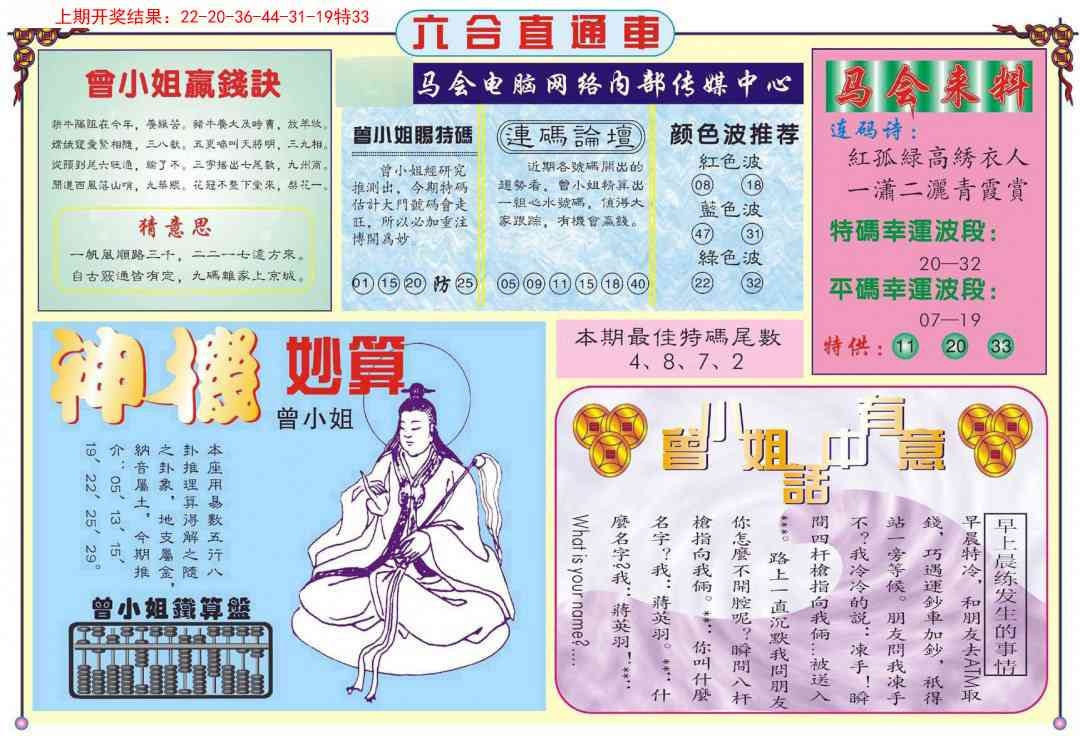 上期开奖结果：22-20-36-44-31-19特33
六合直通車
马会电脑网络内部传媒中心
曾小姐贏錢訣
猜意思
一帆風順路三千，二二一七遠方來。
自古窮通皆有定，九碼離家上京城。
曾小姐賜特碼
曾小姐經研究
推測出，今期特碼
估計大門號碼會走
旺，所以必加重注
博開爲妙
01 15 20 防 25
連碼論壇
近期各號碼開出的
趨勢看，曾小姐精算出
一組心水號碼，值得大
家跟踪，有機會贏錢。
05 09 11 15 18 40
颜色波推荐
紅色波
08 18
藍色波
47 31
綠色波
22 32
马会来料
连码诗：
紅孤緑高綉衣人
一瀟二灑青霞賞
特碼幸運波段：
20—32
平碼幸運波段：
07—19
特供：11 20 33
本期最佳特碼尾數
4、8、7、2
神機妙算
曾小姐
本座用易數五行八
卦推理算得解之隨
之卦象，地支屬金，
納音屬土，今期推
介：05、13、15、
19、22、25、29。
曾小姐鐵算盤
曾小姐話中有意
早上晨练发生的事情
早晨特冷，和朋友去ATM取
錢，巧遇運鈔車加鈔，衹得
站一旁等候。朋友問我凍手
不？我冷冷的説：凍手！瞬
間四杆槍指向我倆…被送入
***。路上一直沉默我問朋友
你怎麼不開腔呢？瞬間八杆
槍指向我倆。**：你叫什麼
名字？我：蔣英羽。**：什
麼名字？我：蔣英羽！**：
What is your name?....